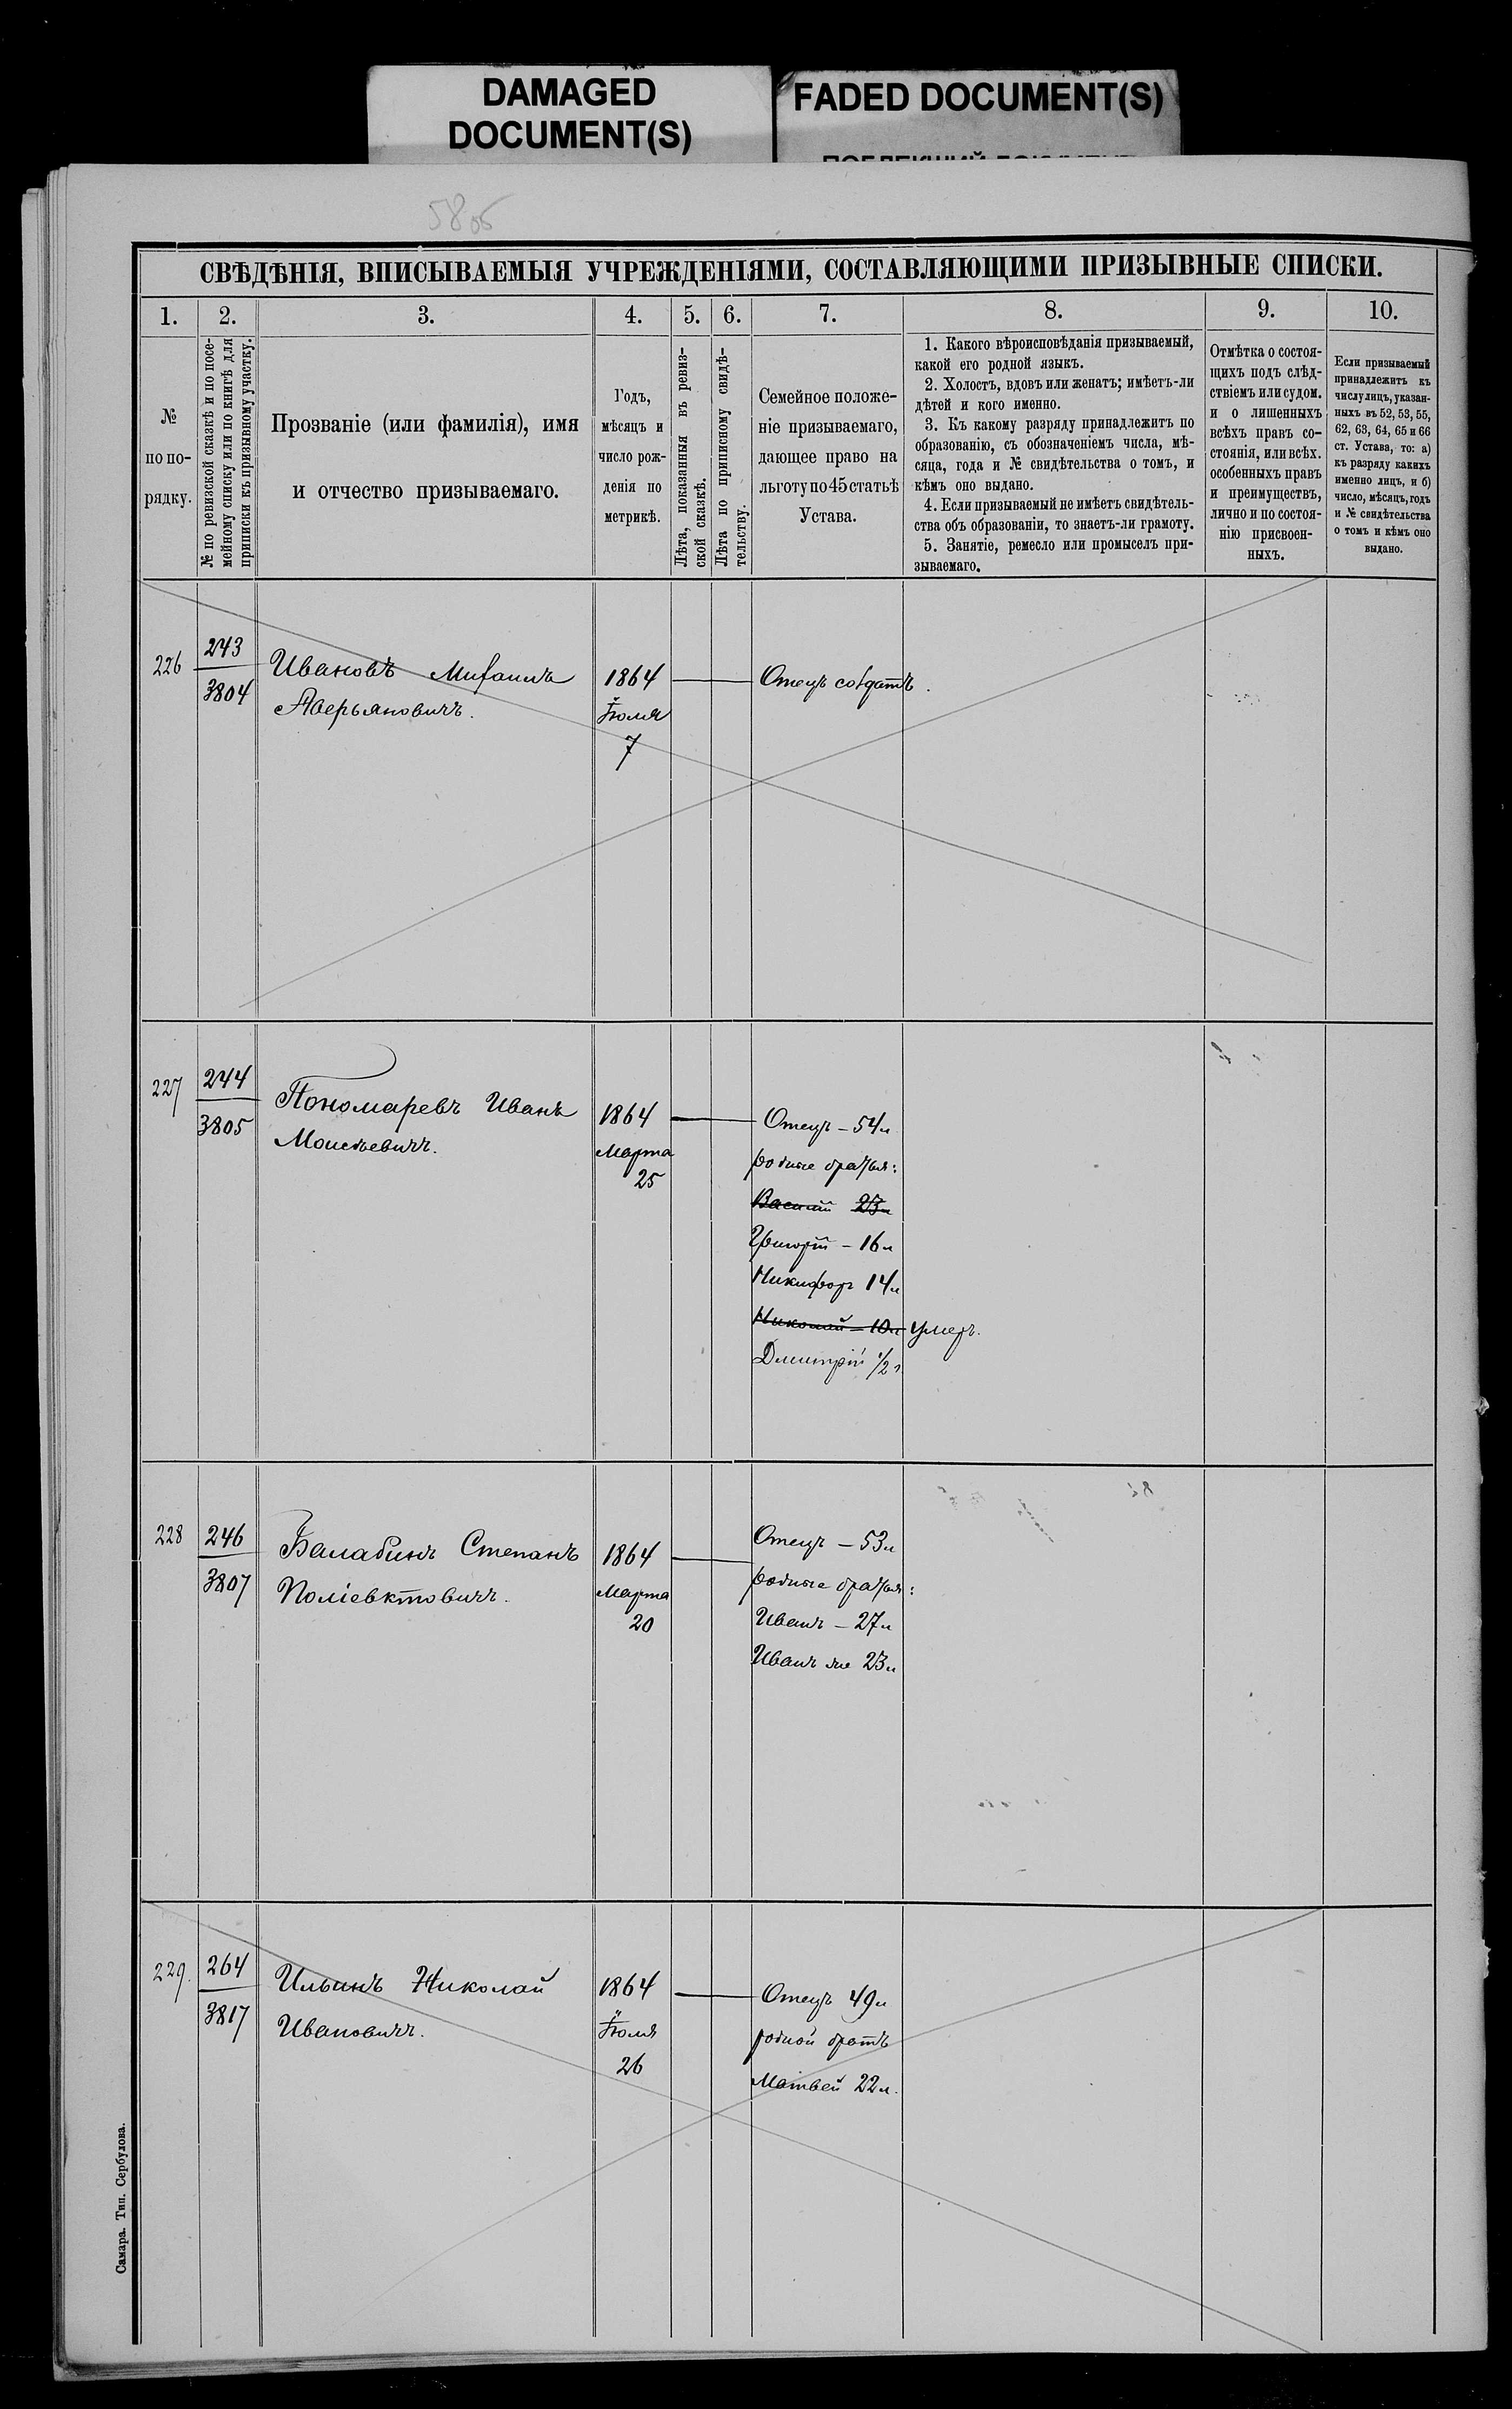 DAMAGED
DOCUMENT(S)
FADED DOCUMENT(S)
СВѢДѢНІЯ, ВПИСЫВАЕМЫЯ УЧРЕЖДЕНІЯМИ, СОСТАВЛЯЮЩИМИ ПРИЗЫВНЫЕ СПИСКИ.
1.
2.
3.
4.
5.
6.
7.
8.
9.
10.
№
по по-
рядку.
№ по ревизской сказкѣ и по посе-
мейному списку или по книгѣ для
приписки къ призывному участку.
Прозваніе (или фамилія), имя
и отчество призываемаго.
Годъ,
мѣсяцъ и
число рож-
денія по
метрикѣ.
Лѣта, показанныя въ ревиз-
ской сказкѣ.
Лѣта по приписному свидѣ-
тельству.
Семейное положе-
ніе призываемаго,
дающее право на
льготу по 45 статьѣ
Устава.
1. Какого вѣроисповѣданія призываемый,
какой его родной языкъ.
2. Холостъ, вдовъ или женатъ; имѣетъ-ли
дѣтей и кого именно.
3. Къ какому разряду принадлежитъ по
образованію, съ обозначеніемъ числа, мѣ-
сяца, года и № свидѣтельства о томъ, и
кѣмъ оно выдано.
4. Если призываемый не имѣетъ свидѣтель-
ства объ образованіи, то знаетъ-ли грамоту.
5. Занятіе, ремесло или промыселъ при-
зываемаго.
Отмѣтка о состоя-
щихъ подъ слѣд-
ствіемъ или судом.
и о лишенныхъ
всѣхъ правъ со-
стоянія, или всѣх.
особенныхъ правъ
и преимуществъ,
лично и по состоя-
нію присвоен-
ныхъ.
Если призываемый
принадлежитъ къ
числу лицъ, указан-
ныхъ въ 52, 53, 55,
62, 63, 64, 65 и 66
ст. Устава, то: а)
къ разряду какихъ
именно лицъ, и б)
число, мѣсяцъ, годъ
и № свидѣтельства
о томъ и кѣмъ оно
выдано.
226
243
3804
Ивановъ Михаилъ
Аверьяновичъ.
1864
Іюля
7
Отецъ солдатъ.
227
244
3805
Пономаревъ Иванъ
Моисѣевичъ.
1864
Марта
25
Отецъ – 54 л
родные братья:
Василій 23 л
Григорій – 16 л
Никифоръ 14 л
Николай – 10 л умеръ.
Дмитрій 1/2 г.
228
246
3807
Балабинъ Степанъ
Поліевктовичъ.
1864
Марта
20
Отецъ – 53 л
родные братья:
Иванъ – 27 л
Иванъ же 23 л
229.
264
3817
Ильинъ Николай
Ивановичъ.
1864
Іюля
26
Отецъ 49 л
родной братъ
Матвей 22 л.
Самара. Тип. Сербулова.